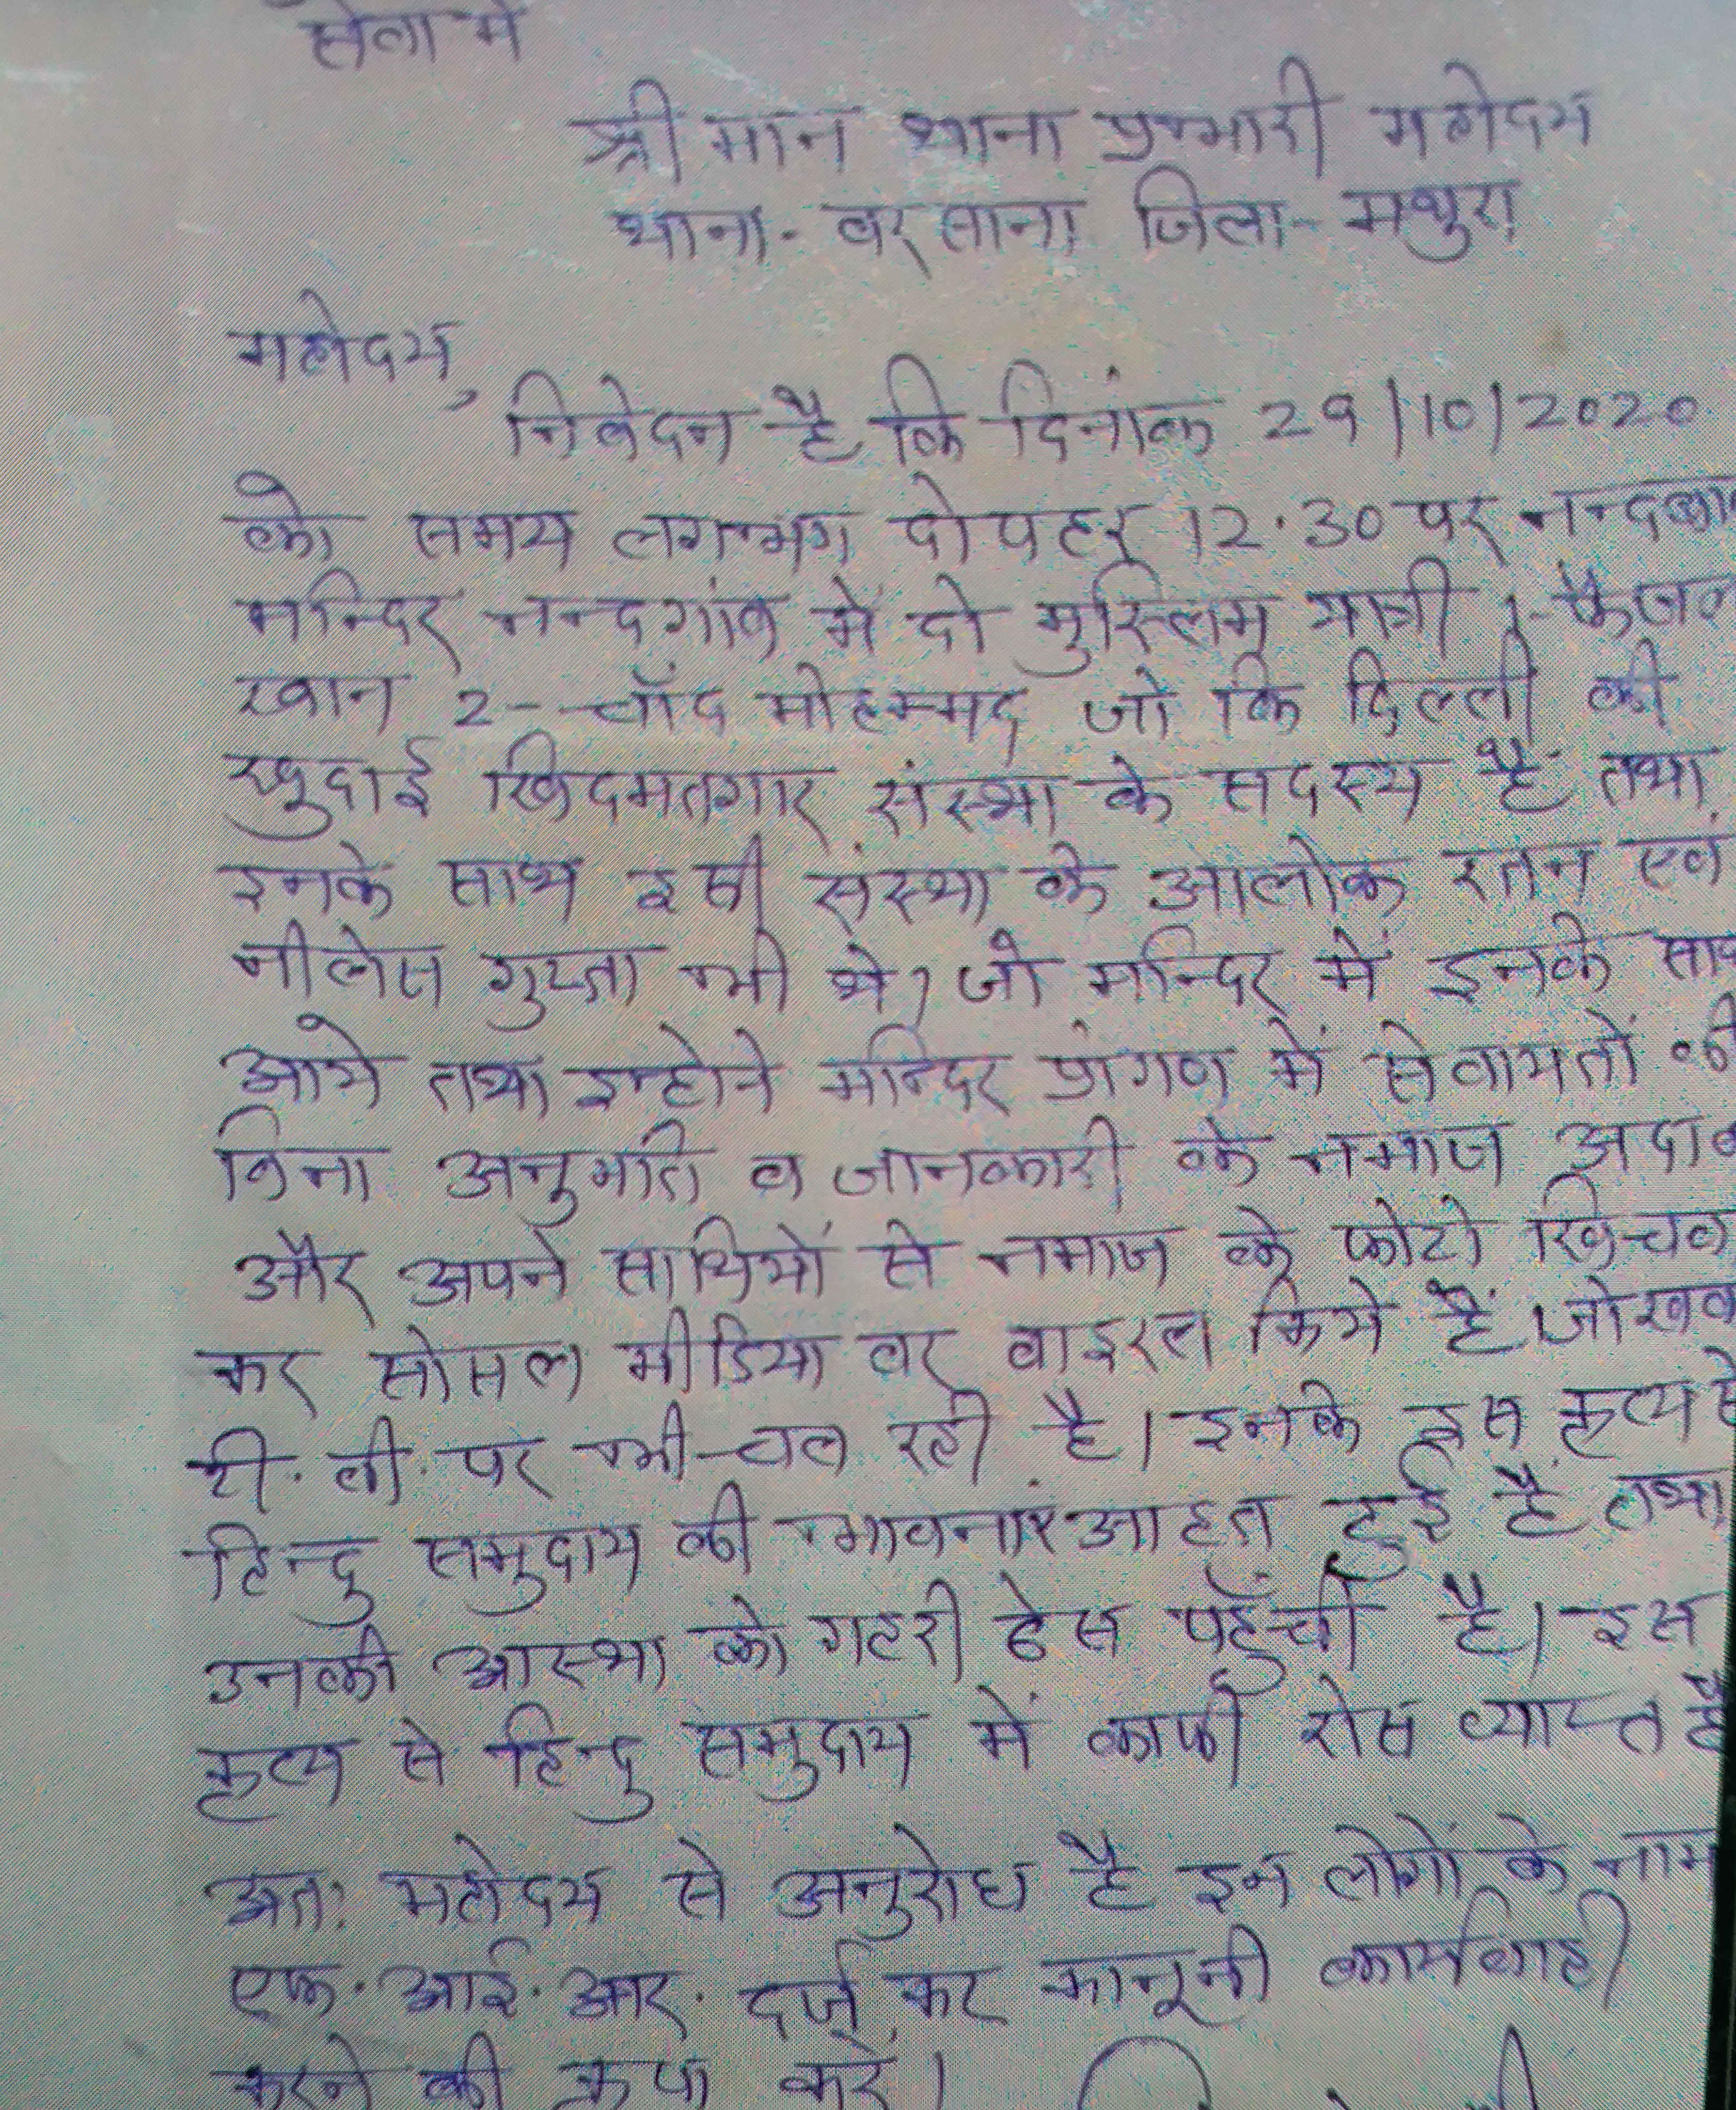 सेवा में
श्री मान थाना प्रभारी महोदय
थाना- बरसाना जिला- मथुरा
महोदय,
निवेदन है कि दिनांक 29/10/2020
को समय लगभग दोपहर 12.30 पर
मन्दिर नन्दगांव में दो मुस्लिम यात्री 1-
खान 2- चाँद मोहम्मद जो कि दिल्ली की
खुदाई खिदमतगार संस्था के सदस्य है तथा
इनके साथ इसी संस्था के आलोक रतन एवं
नीलेस गुप्ता भी थे, जो मन्दिर में इनके
आये तथा इन्होने मन्दिर प्रांगण में सेवायतों की
बिना अनुमति व जानकारी के नमाज
और अपने साथियों से नमाज के फोटो
कर सोसल मीडिया पर वाइरल किये हैं
टी. वी. पर भी चल रही है। इनके इस कृत्य
हिन्दु समुदाय की भावनाएं आहत हुई हैं तथा
उनकी आस्था को गहरी ठेस पहुँची है। इस
कृत्य से हिन्दु समुदाय में काफी रोस व्याप्त है
अत: महोदय से अनुरोध है इन लोगों के नाम
एफ. आई. आर. दर्ज कर कानूनी कार्यवाही
करने की कृपा करें।